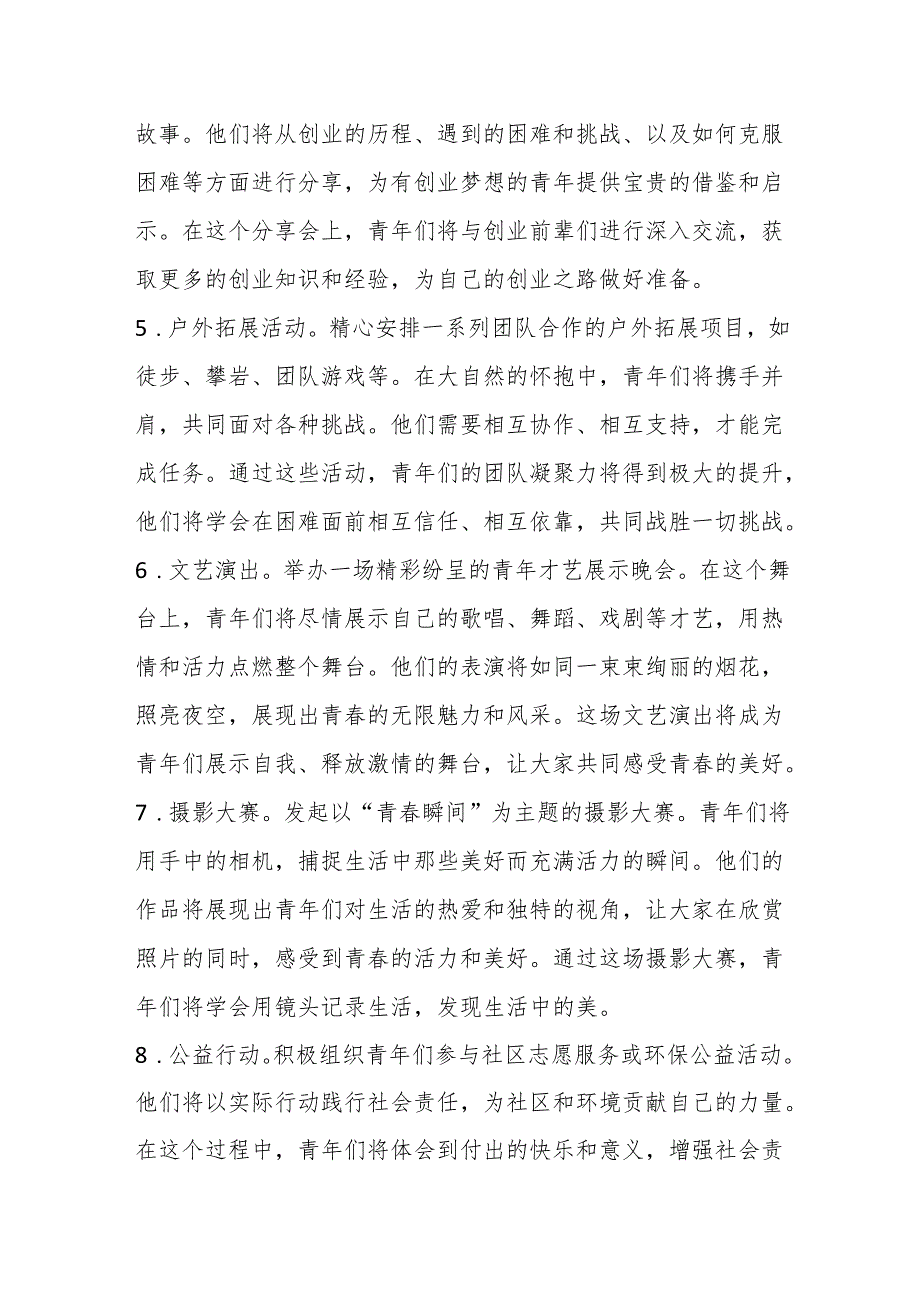 故事。他们将从创业的历程、遇到的困难和挑战、以及如何克服
困难等方面进行分享，为有创业梦想的青年提供宝贵的借鉴和启
示。在这个分享会上，青年们将与创业前辈们进行深入交流，获
取更多的创业知识和经验，为自己的创业之路做好准备。
5．户外拓展活动。精心安排一系列团队合作的户外拓展项目，如
徒步、攀岩、团队游戏等。在大自然的怀抱中，青年们将携手并
肩，共同面对各种挑战。他们需要相互协作、相互支持，才能完
成任务。通过这些活动，青年们的团队凝聚力将得到极大的提升，
他们将学会在困难面前相互信任、相互依靠，共同战胜一切挑战。
6．文艺演出。举办一场精彩纷呈的青年才艺展示晚会。在这个舞
台上，青年们将尽情展示自己的歌唱、舞蹈、戏剧等才艺，用热
情和活力点燃整个舞台。他们的表演将如同一束束绚丽的烟花，
照亮夜空，展现出青春的无限魅力和风采。这场文艺演出将成为
青年们展示自我、释放激情的舞台，让大家共同感受青春的美好。
7．摄影大赛。发起以“青春瞬间”为主题的摄影大赛。青年们将
用手中的相机，捕捉生活中那些美好而充满活力的瞬间。他们的
作品将展现出青年们对生活的热爱和独特的视角，让大家在欣赏
照片的同时，感受到青春的活力和美好。通过这场摄影大赛，青
年们将学会用镜头记录生活，发现生活中的美。
8．公益行动。积极组织青年们参与社区志愿服务或环保公益活动。
他们将以实际行动践行社会责任，为社区和环境贡献自己的力量。
在这个过程中，青年们将体会到付出的快乐和意义，增强社会责